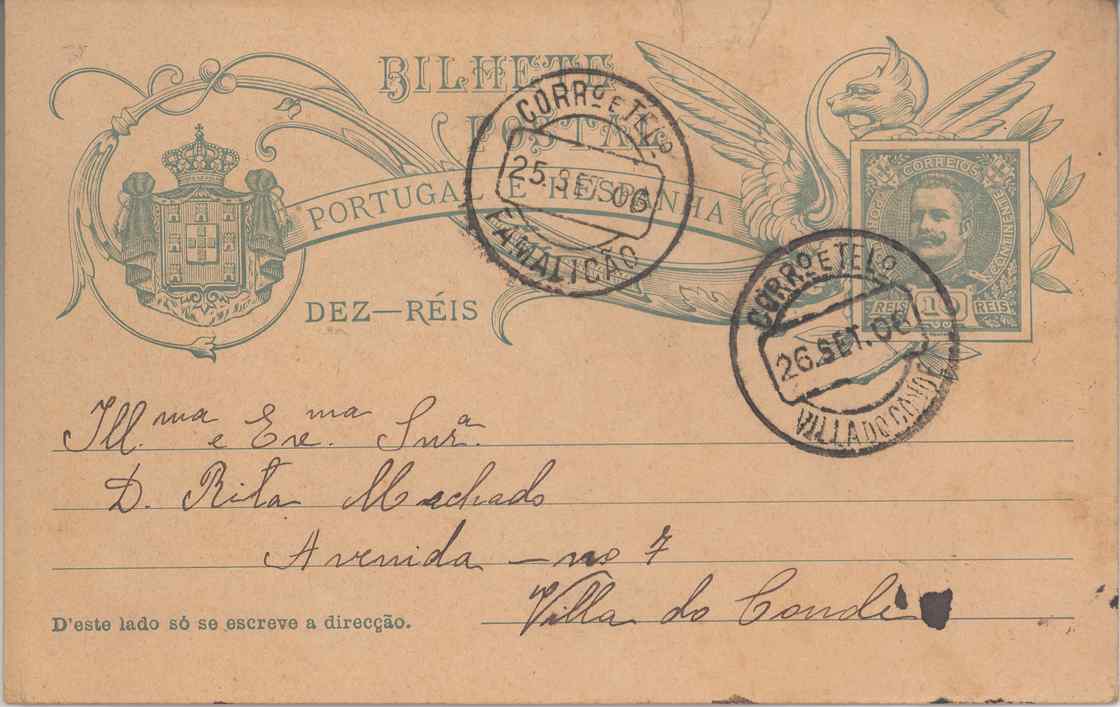 BILHETE
POSTAL
PORTUGAL E HESPANHA
DEZ—RÉIS
CORREIOS
PORTUGAL
CONTINENTE
REIS 10 REIS
CORRº E TELº
25.SET.06
FAMALICÃO
CORRº E TELº
26.SET.06
VILLA DO CONDE
Ill.ma e Exe.ma Snrª.
D. Rita Machado
Avenida – nº 7
Villa do Conde
D'este lado só se escreve a direcção.